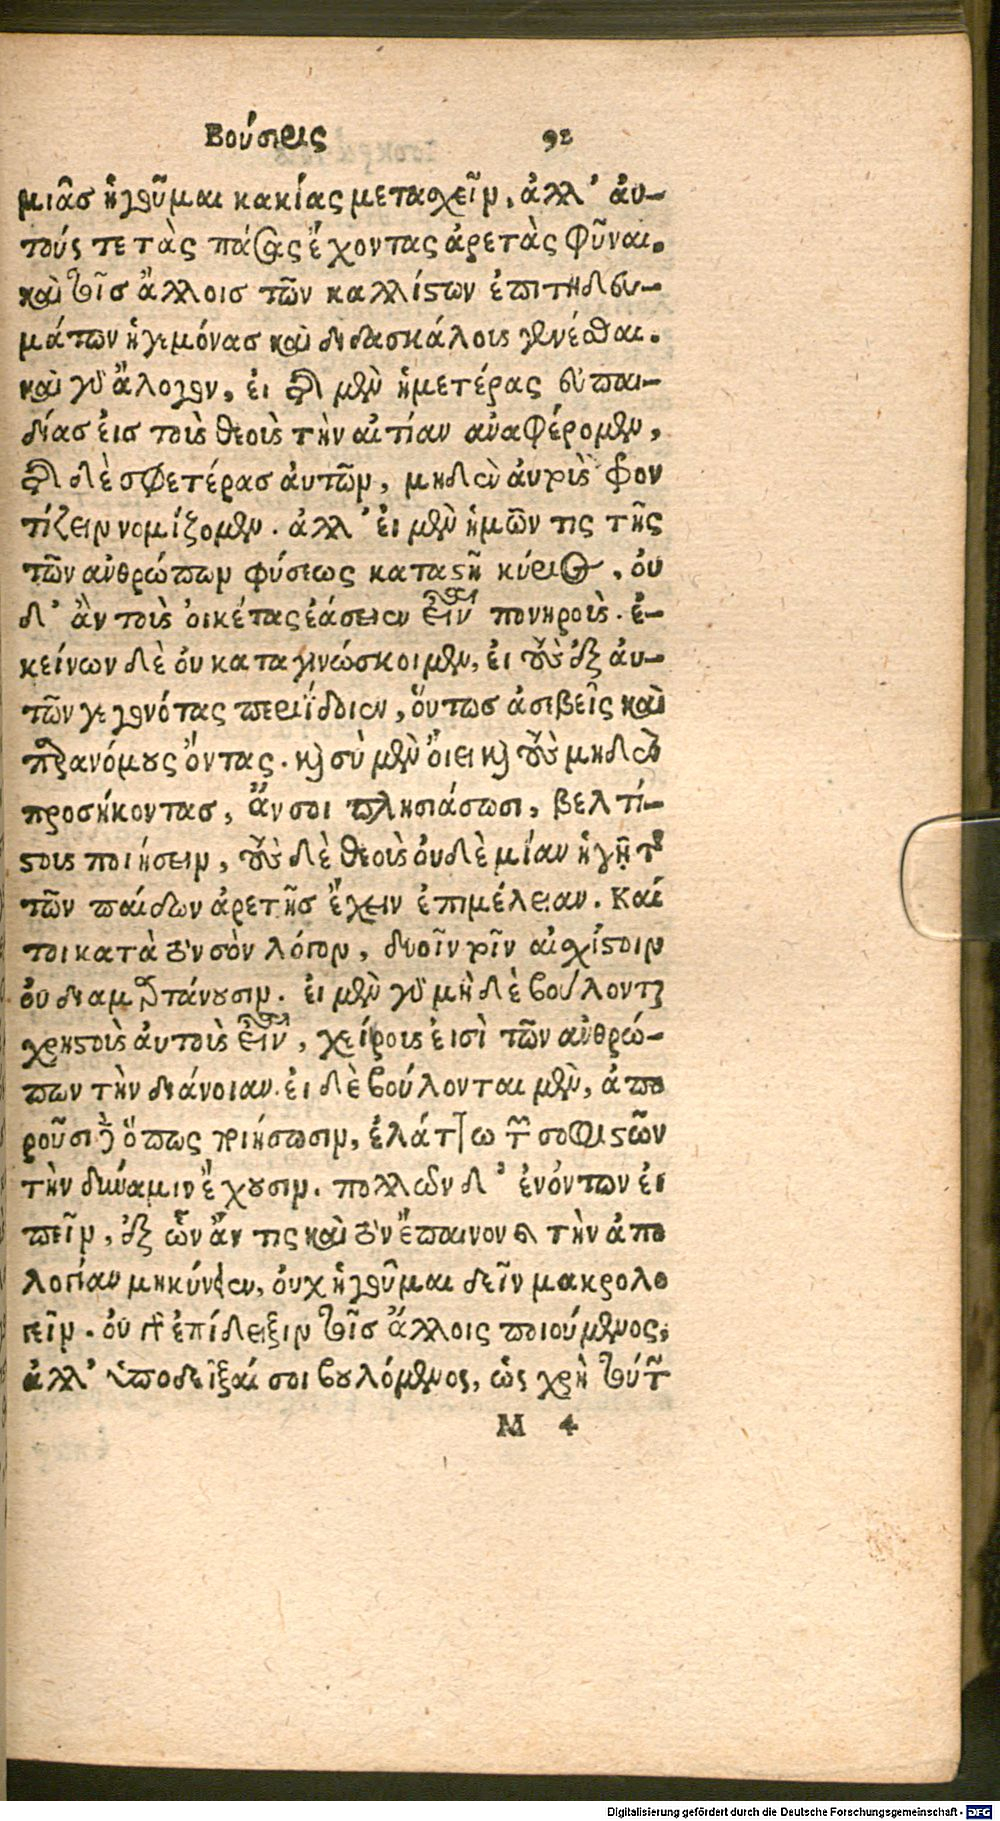 Βούσιρις 92
μιᾶσ ἡγοῦμαι κακίας μεταχεῖν, ἀλλ' ἀυ-
τούς τε τὰς πάσας ἔχοντας ἀρετὰς φῦναι.
καὶ τοῖσ ἄλλοισ τῶν καλλίστων ἐπιτηδευ-
μάτων ἡγεμόνασ καὶ διδασκάλους γενέσθαι.
καὶ γὸ ἄλογον, ἐι τῆς μὲν ἡμετέρας ἐυπαι-
δίας ἐισ τοὺς θεοὺς τὴν αἰτίαν ἀναφέρομεν,
τῆς δὲ σφετέρασ ἀυτῶν, μηδὲν ἀυτοὺς φρον
τίζειν νομίζομεν. ἀλλ' ἐι μὲν ἡμῶν τις τῆς
τῶν ἀνθρώπων φύσεως καταστῆ κύριος, ὀυ
δ' ἂν τοὺς ὀικέτας ἐάσειεν εἶναι πονηρούς. ἐ-
κείνων δὲ ὀυ καταγινώσκοιμεν, ἐι τοὺς ἐξ ἀυ-
τῶν γεγονότας περιΐδοιεν, ὅυτωσ ἀσεβεῖς καὶ
παρανόμους ὄντας. καὶ σὺ μὲν ὄιει καὶ τοὺς μηδὲν
προσήκοντασ, ἄν σοι πλησιάσωσι, βελτί-
στους ποιήσειν, τοὺς δὲ θεοὺς ὀυδὲ μίαν ἡγῇ τῆς
τῶν παίδων ἀρετῆσ ἔχειν ἐπιμέλειαν. Καί
τοι κατὰ τὸν σὸν λόγον, δυοῖν τοῖν αἰσχίστοιν
ὀυ διαμαρτάνουσιν. ἐι μὲν γὸ μὴ δὲ βούλονται
χρηστοὺς ἀυτοὺς εἶναι, χείρους ἐισὶ τῶν ἀνθρώ-
πων τὴν διάνοιαν. ἐι δὲ βούλονται μὲν, ἀπο
ροῦσι δὲ ὅπως ποιήσωσιν, ἐλάττω τῶν σοφιστῶν
τὴν δύναμιν ἔχουσιν. πολλῶν δ' ἐνόντων ἐι
πεῖν, ἐξ ὧν ἄν τις καὶ τὸν ἔπαινον καὶ τὴν ἀπο
λογίαν μηκύνειεν, ὀυχ ἡγοῦμαι δεῖν μακρολο
γεῖν. ὀυ γὸ ἐπίδειξιν τοῖσ ἄλλοις ποιούμενος,
ἀλλ' ὑποδεῖξαί σοι βουλόμενος, ὡς χρὴ τούτων
M 4
Digitalisierung gefördert durch die Deutsche Forschungsgemeinschaft - DFG